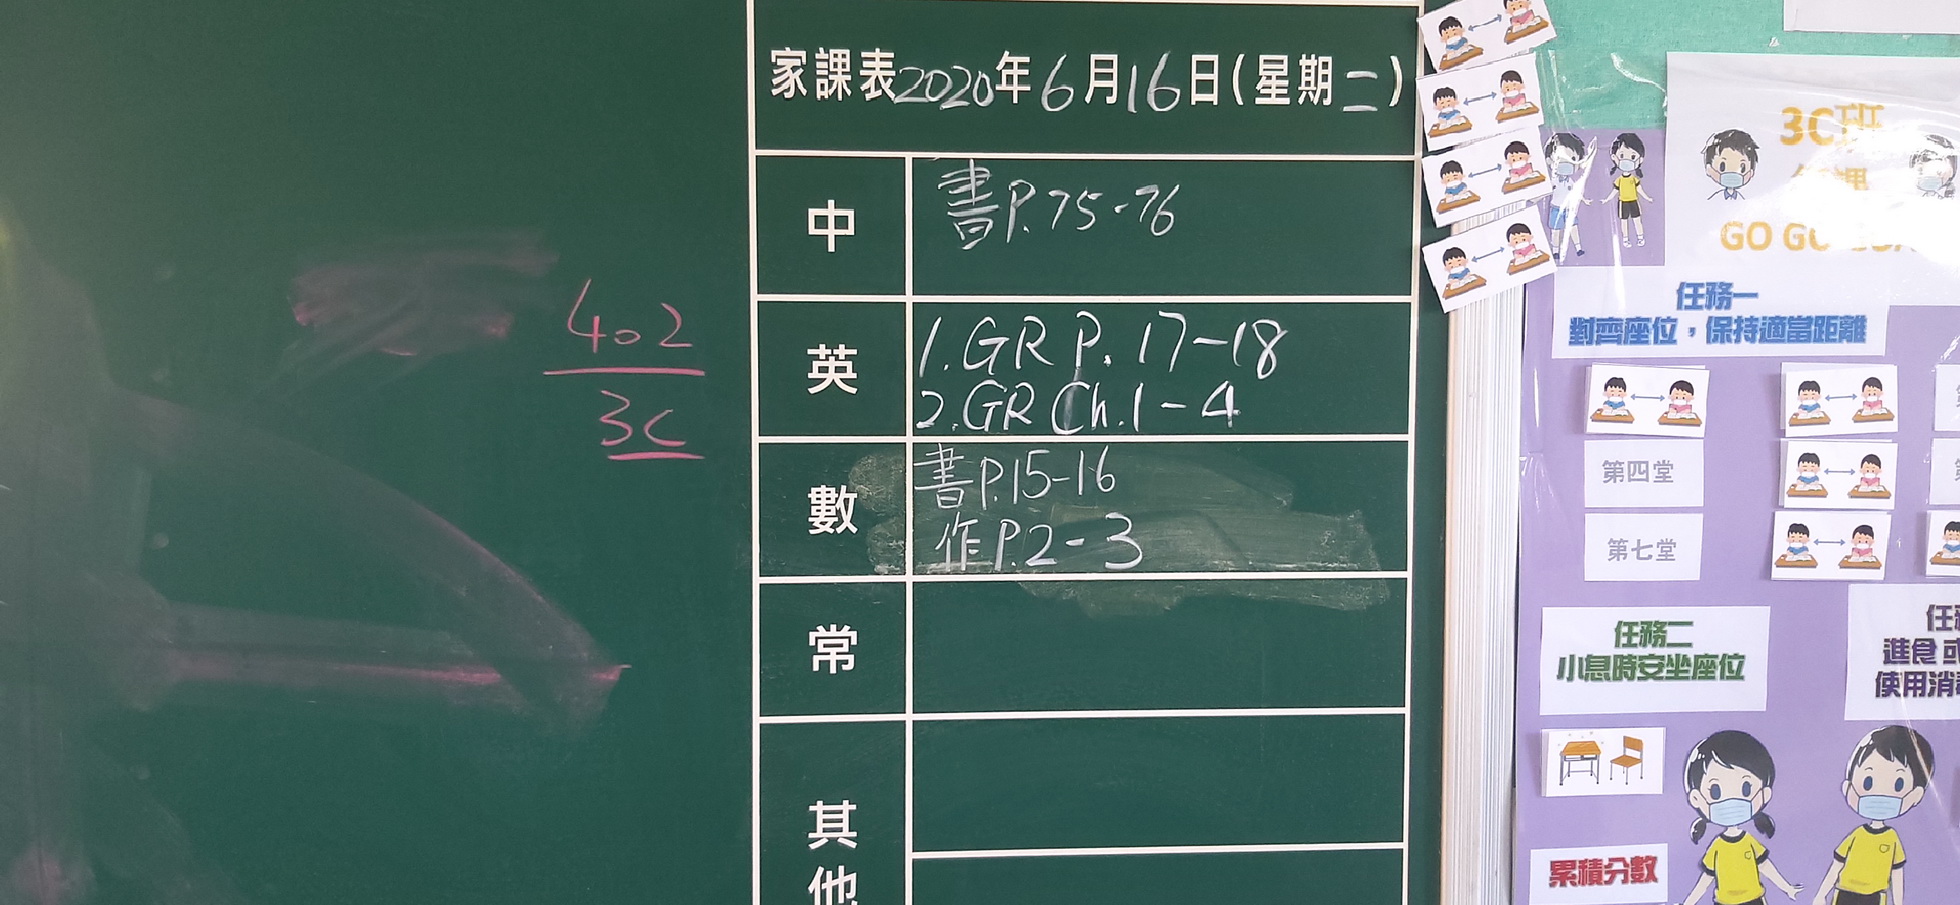 402
3C
家課表2020年6月16日(星期二)
中
書P.75-76
英
1.GR P.17-18
2.GR Ch.1-4
數
書P.15-16
作P.2-3
常
其他
3C班
GO GO
任務一
對齊座位，保持適當距離
第四堂
第七堂
任務二
小息時安坐座位
進食
使用消
累積分數